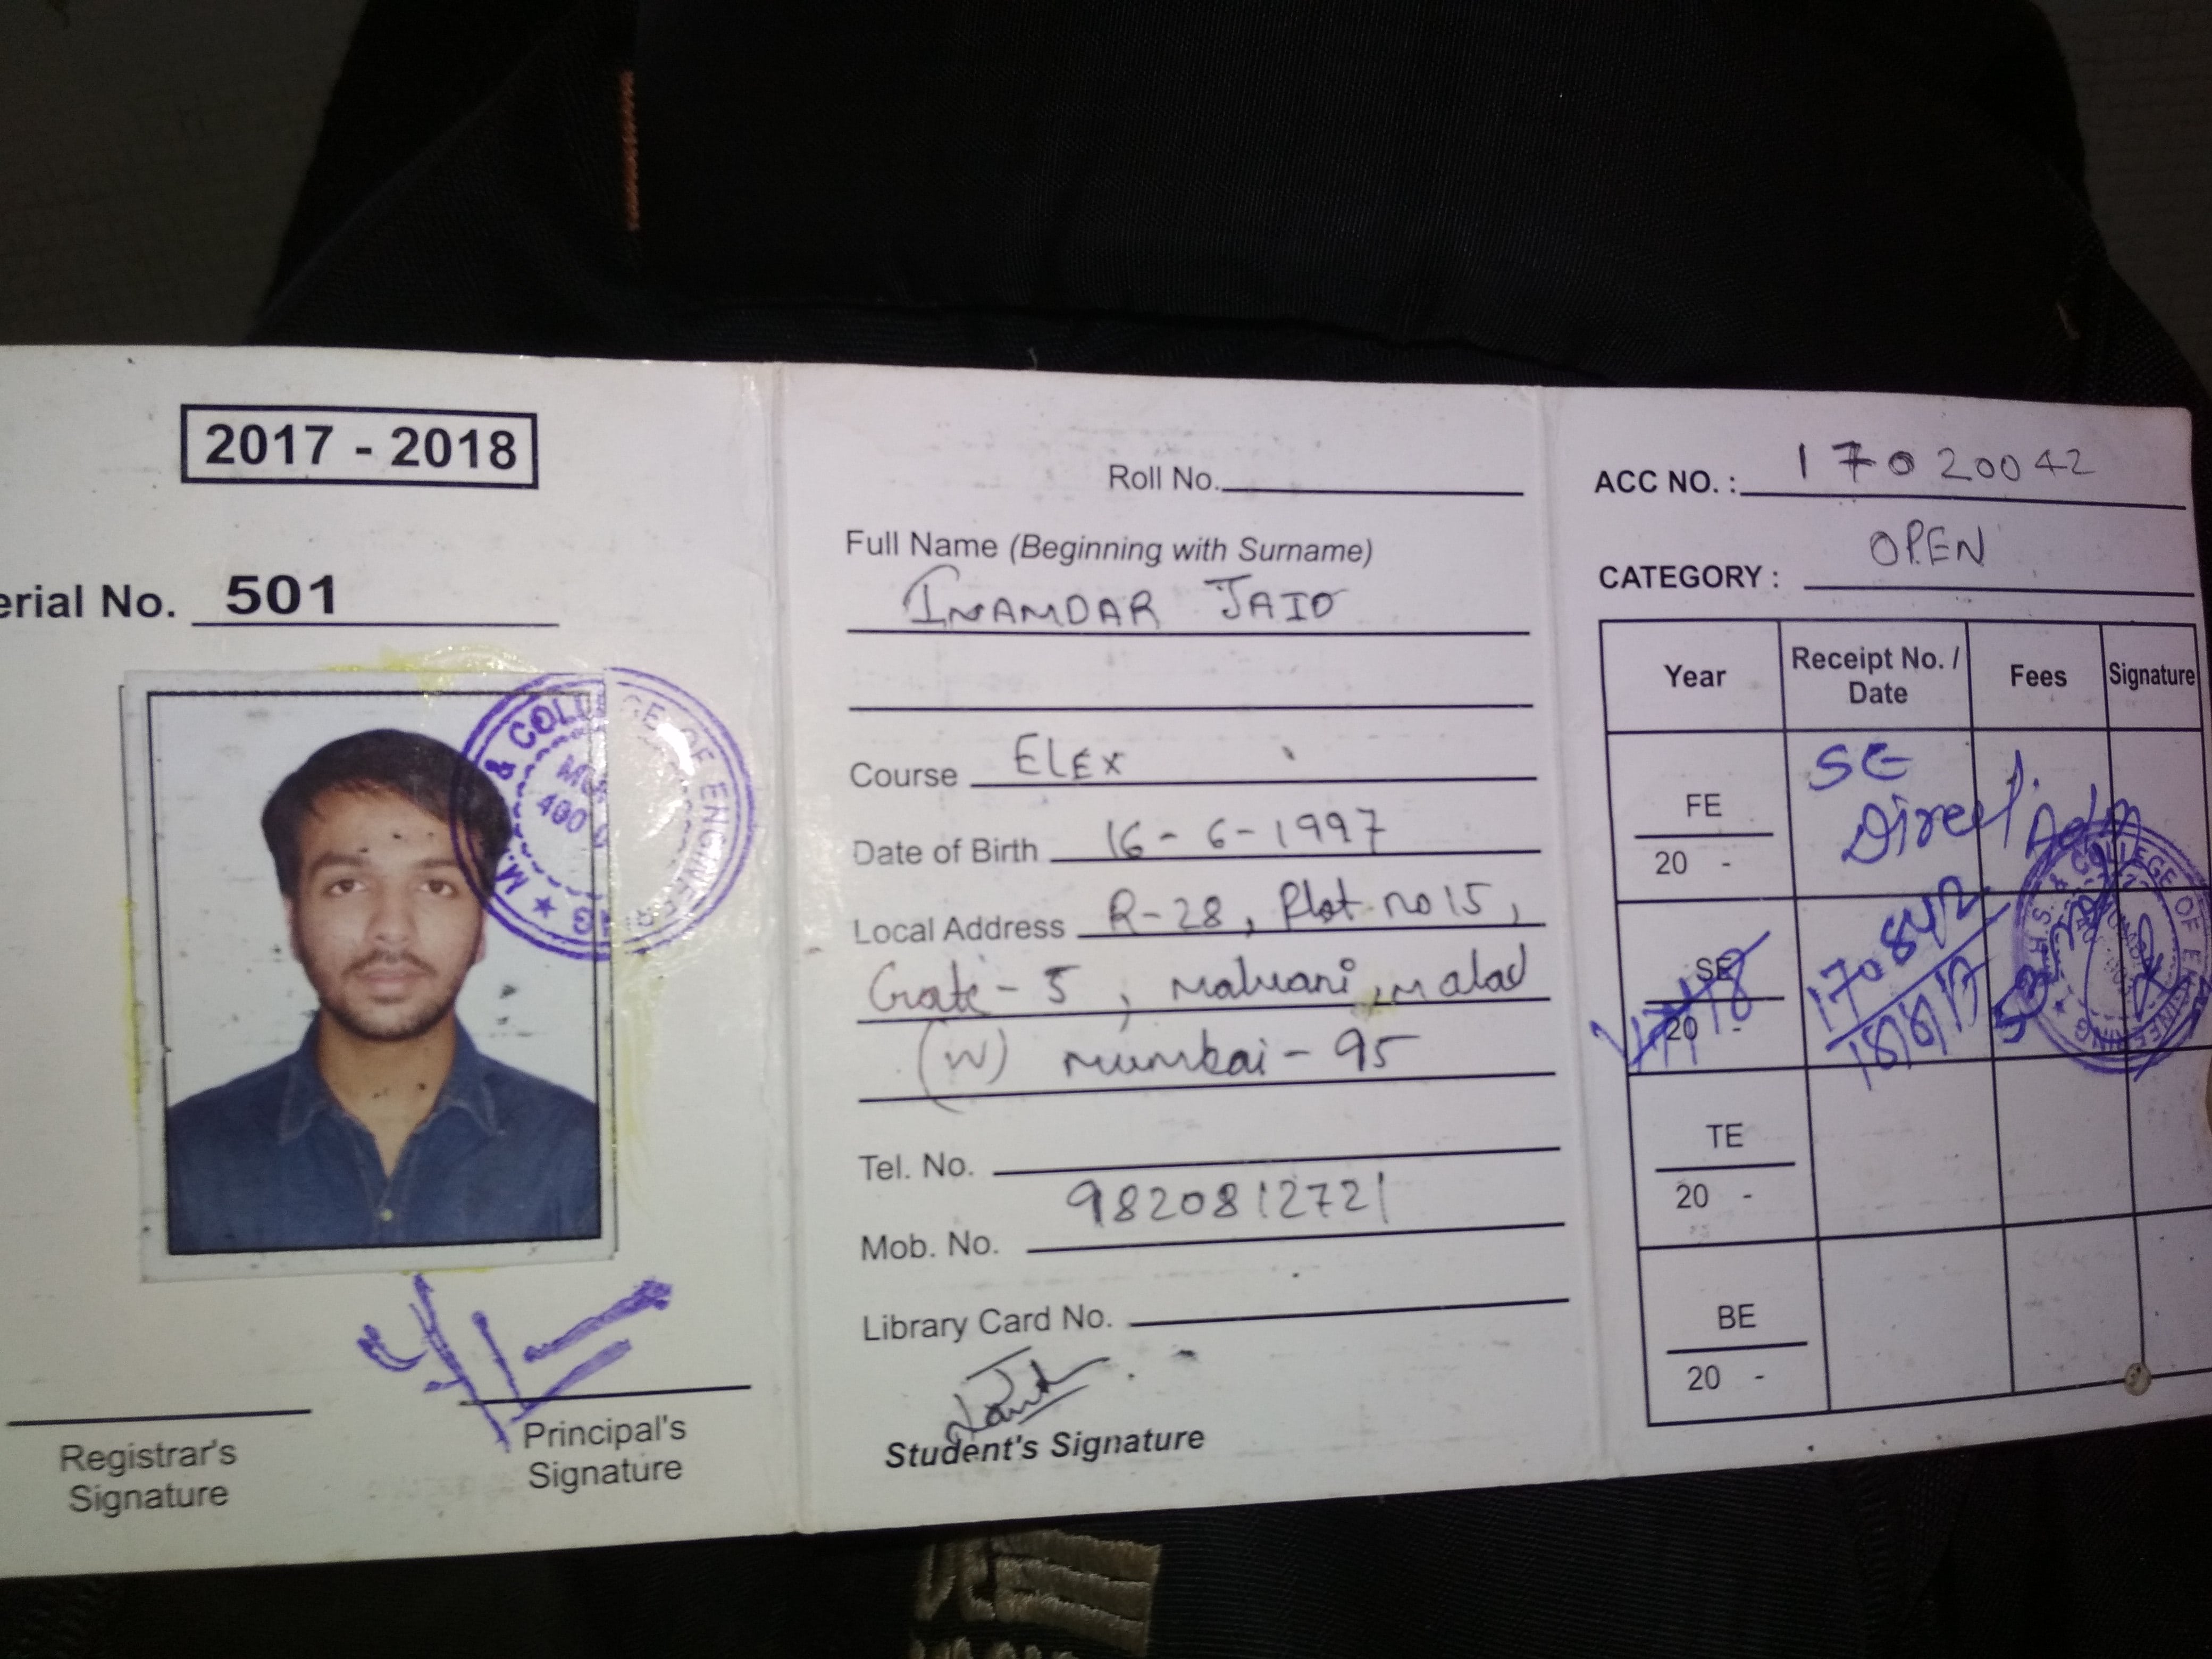 2017 - 2018
erial No. 501
Registrar's
Signature
Principal's
Signature
Roll No.
Full Name (Beginning with Surname)
INAMDAR JAID
Course ELEX
Date of Birth 16-6-1997
Local Address R-28, Plot no 15,
Gate-5, Malvani, malad
(W) mumbai-95
Tel. No.
Mob. No. 9820812721
Library Card No.
Student's Signature
ACC NO. : 17020042
CATEGORY : OPEN
Year Receipt No. / Date Fees Signature
FE
20 -
SE
Direct Adm
SE
20 -
170842
18/8/17
TE
20 -
BE
20 -
& COLLEGE OF ENGINEERING
COLLEGE OF ENGINEERING